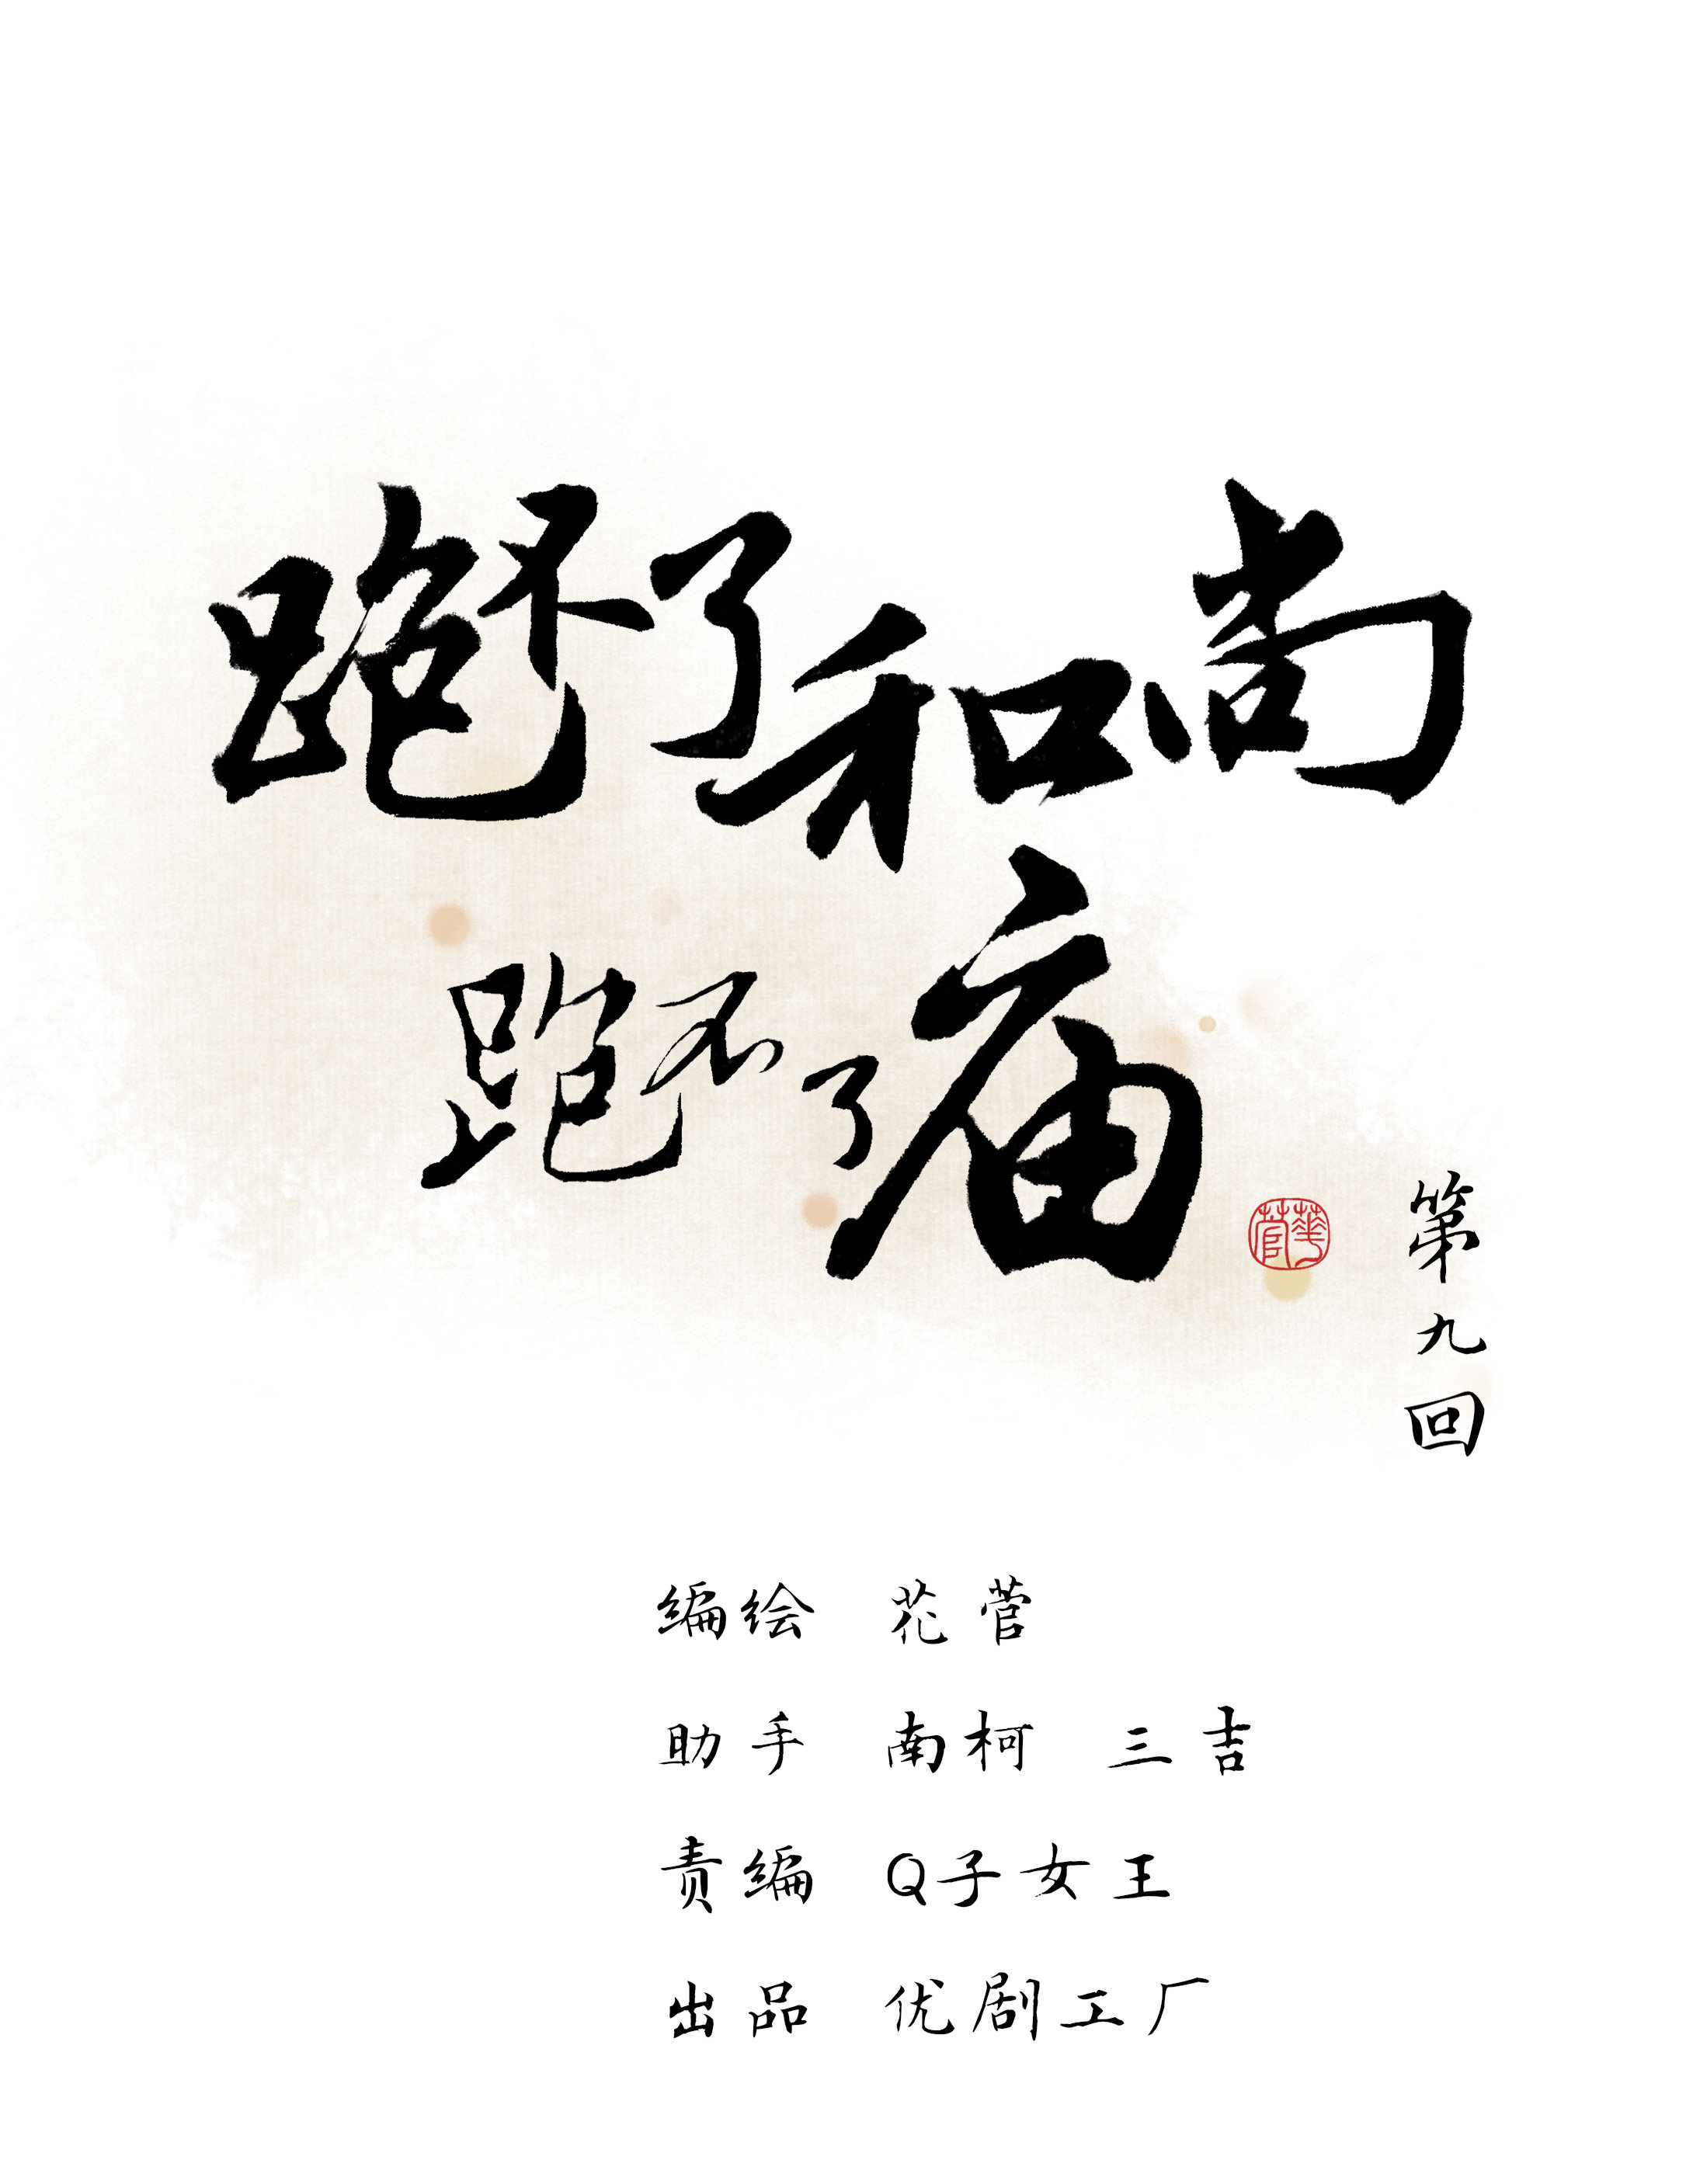 跑不了和尚
跑不了庙
華菅
第九回
编绘 花菅
助手 南柯 三吉
责编 Q子女王
出品 优剧工厂